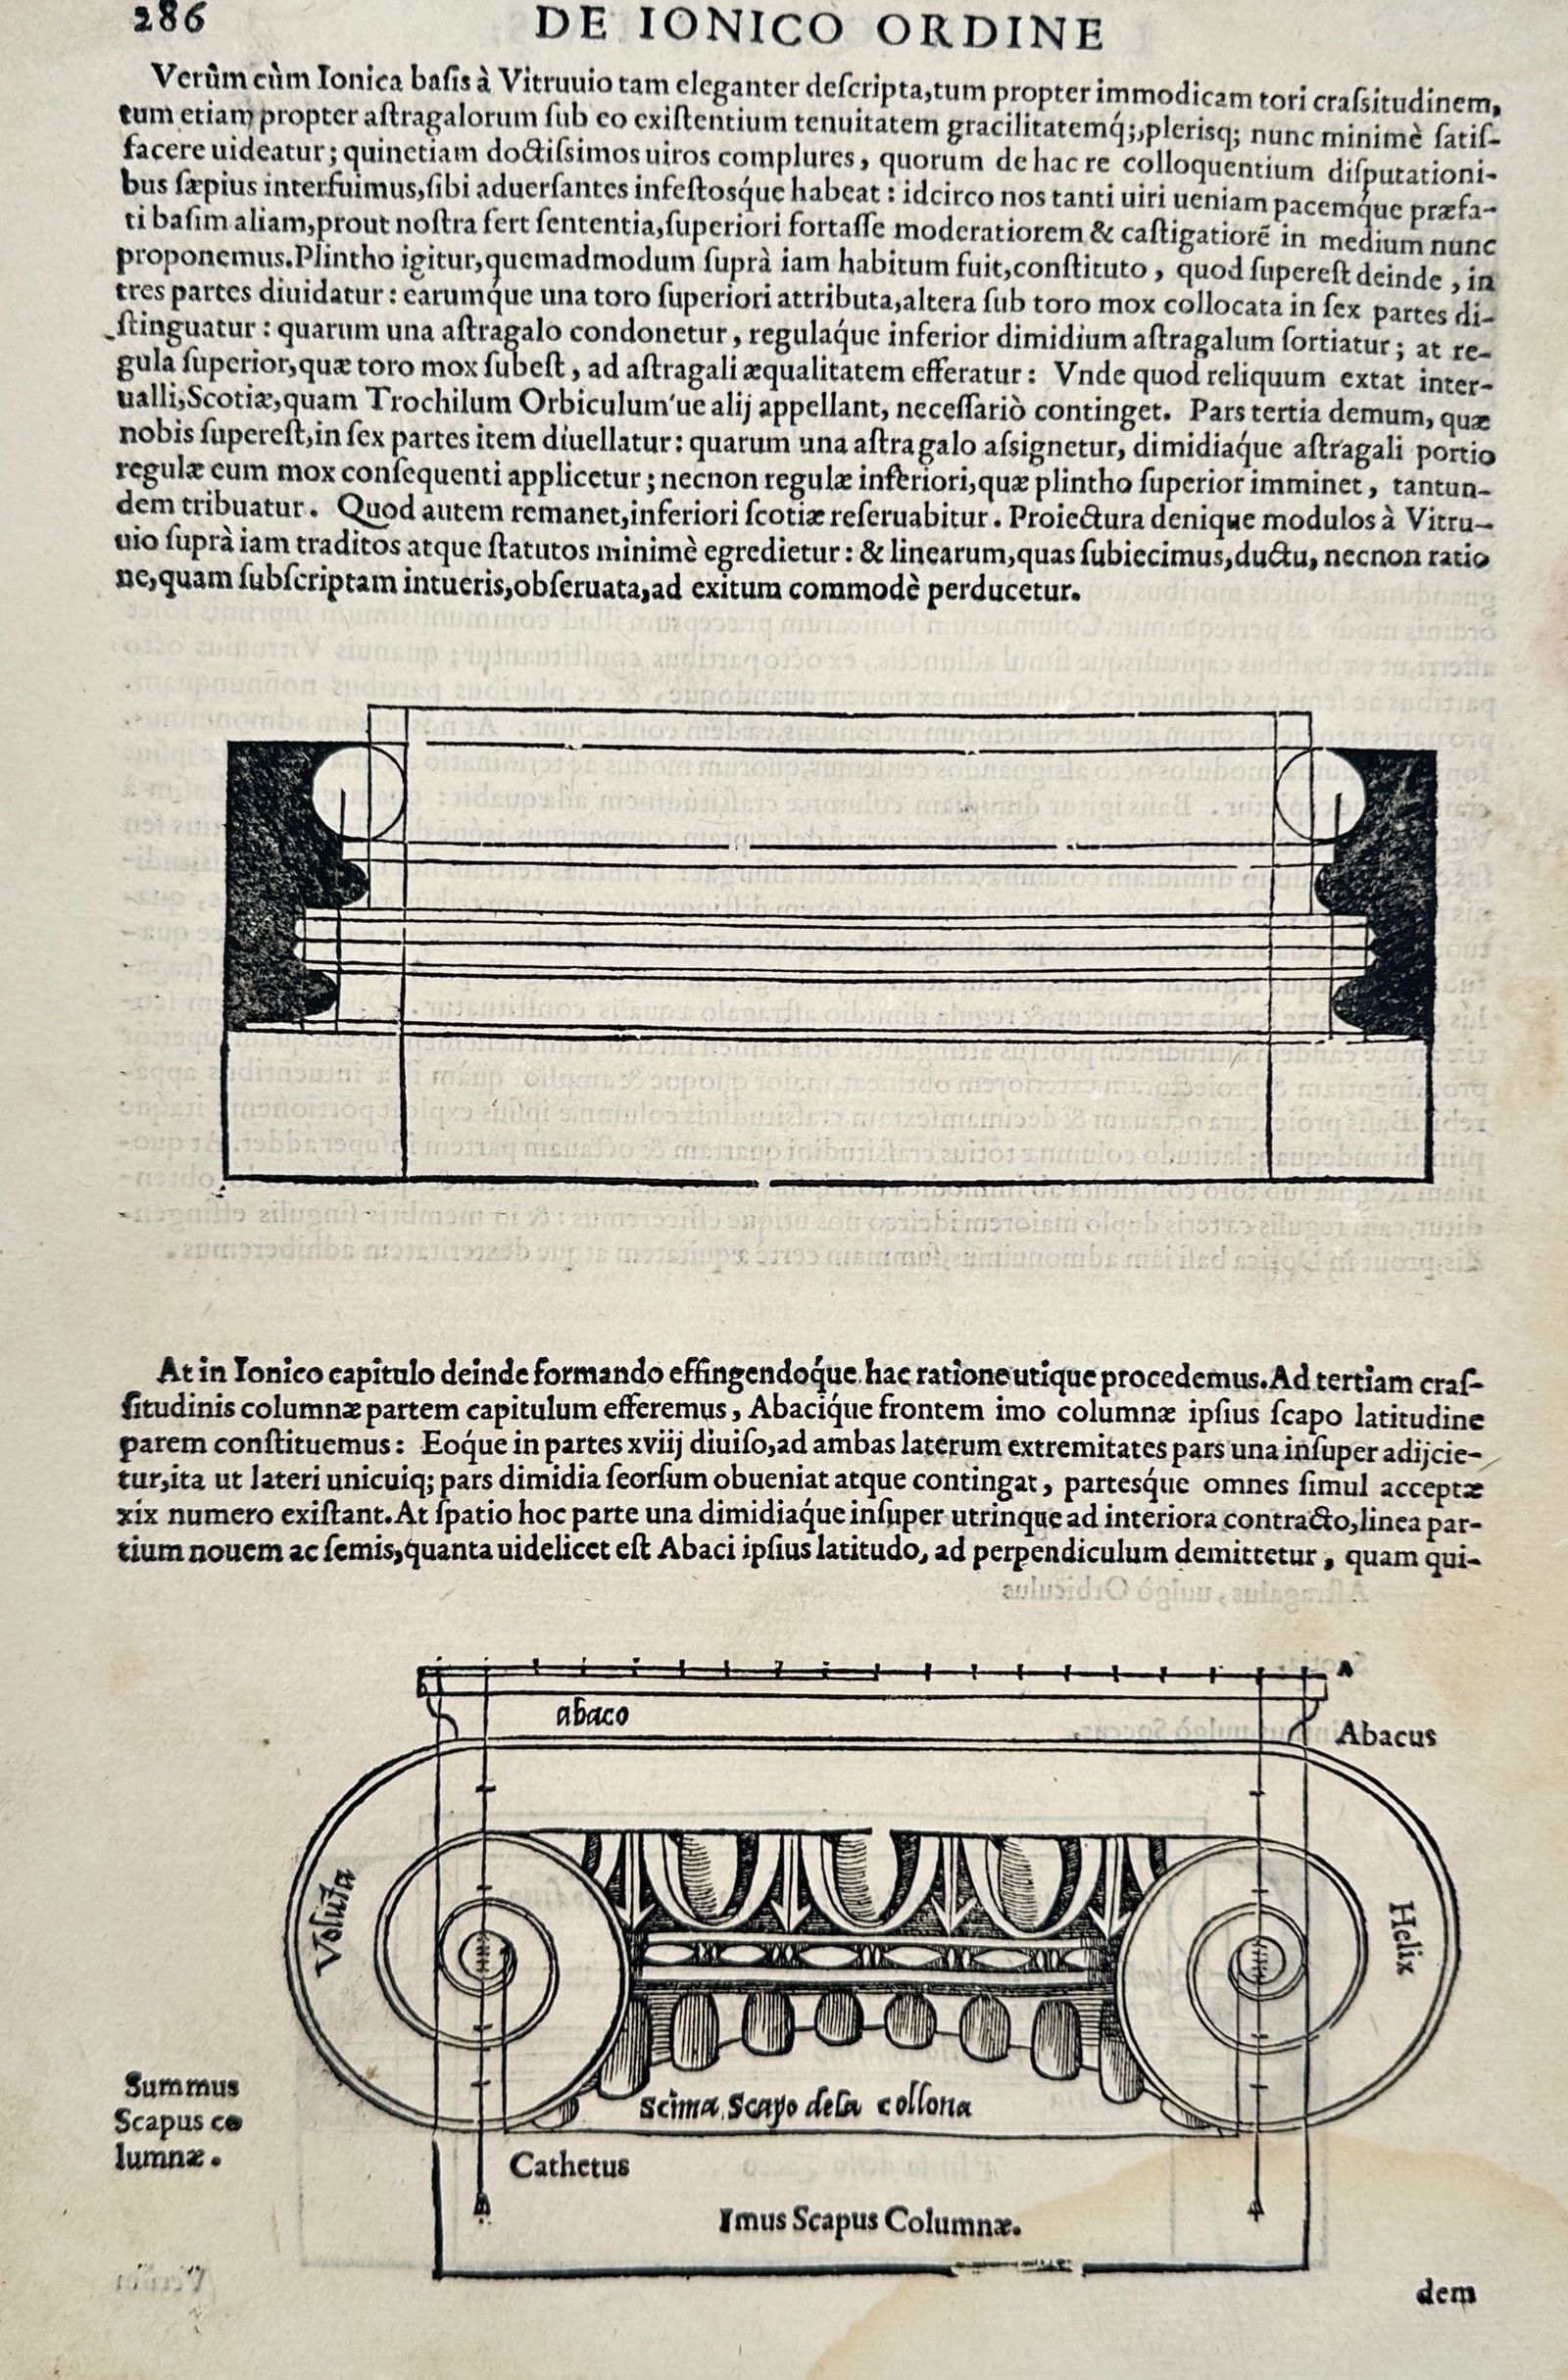 286
DE IONICO ORDINE
Verûm cùm Ionica basis à Vitruuio tam eleganter descripta,tum propter immodicam tori crassitudinem,
tum etiam propter astragalorum sub eo existentium tenuitatem gracilitatemq́;,plerisq; nunc minimè satis-
facere uideatur; quinetiam doctissimos uiros complures, quorum de hac re colloquentium disputationi-
bus sæpius interfuimus,sibi aduersantes infestosq́ue habeat: idcirco nos tanti uiri ueniam pacemq́ue præfa-
ti basim aliam,prout nostra fert sententia,superiori fortasse moderatiorem & castigatiorẽ in medium nunc
proponemus.Plintho igitur,quemadmodum suprà iam habitum fuit,constituto, quod superest deinde, in
tres partes diuidatur: earumq́ue una toro superiori attributa,altera sub toro mox collocata in sex partes di-
stinguatur: quarum una astragalo condonetur, regulaq́ue inferior dimidium astragalum sortiatur; at re-
gula superior,quæ toro mox subest, ad astragali æqualitatem efferatur: Vnde quod reliquum extat inter-
ualli,Scotiæ,quam Trochilum Orbiculum'ue alij appellant, necessariò continget. Pars tertia demum, quæ
nobis superest,in sex partes item diuellatur: quarum una astragalo assignetur, dimidiaq́ue astragali portio
regulæ eum mox consequenti applicetur; necnon regulæ inferiori,quæ plintho superior imminet, tantun-
dem tribuatur. Quod autem remanet,inferiori scotiæ reseruabitur. Proiectura denique modulos à Vitru-
uio suprà iam traditos atque statutos minimè egredietur: & linearum,quas subiecimus,ductu, necnon ratio
ne,quam subscriptam intueris,obseruata,ad exitum commodè perducetur.
At in Ionico capitulo deinde formando effingendoq́ue hac ratione utique procedemus.Ad tertiam cras-
situdinis columnæ partem capitulum efferemus, Abaciq́ue frontem imo columnæ ipsius scapo latitudine
parem constituemus: Eoq́ue in partes xviij diuiso,ad ambas laterum extremitates pars una insuper adijcie-
tur,ita ut lateri unicuiq; pars dimidia seorsum obueniat atque contingat, partesq́ue omnes simul acceptæ
xix numero existant.At spatio hoc parte una dimidiaq́ue insuper utrinque ad interiora contracto,linea par-
tium nouem ac semis,quanta uidelicet est Abaci ipsius latitudo, ad perpendiculum demittetur, quam qui-
A
abaco
Abacus
Voluta
Helix
Summus
Scapus co
lumnæ.
scima scapo dela collona
Cathetus
Imus Scapus Columnæ.
dem